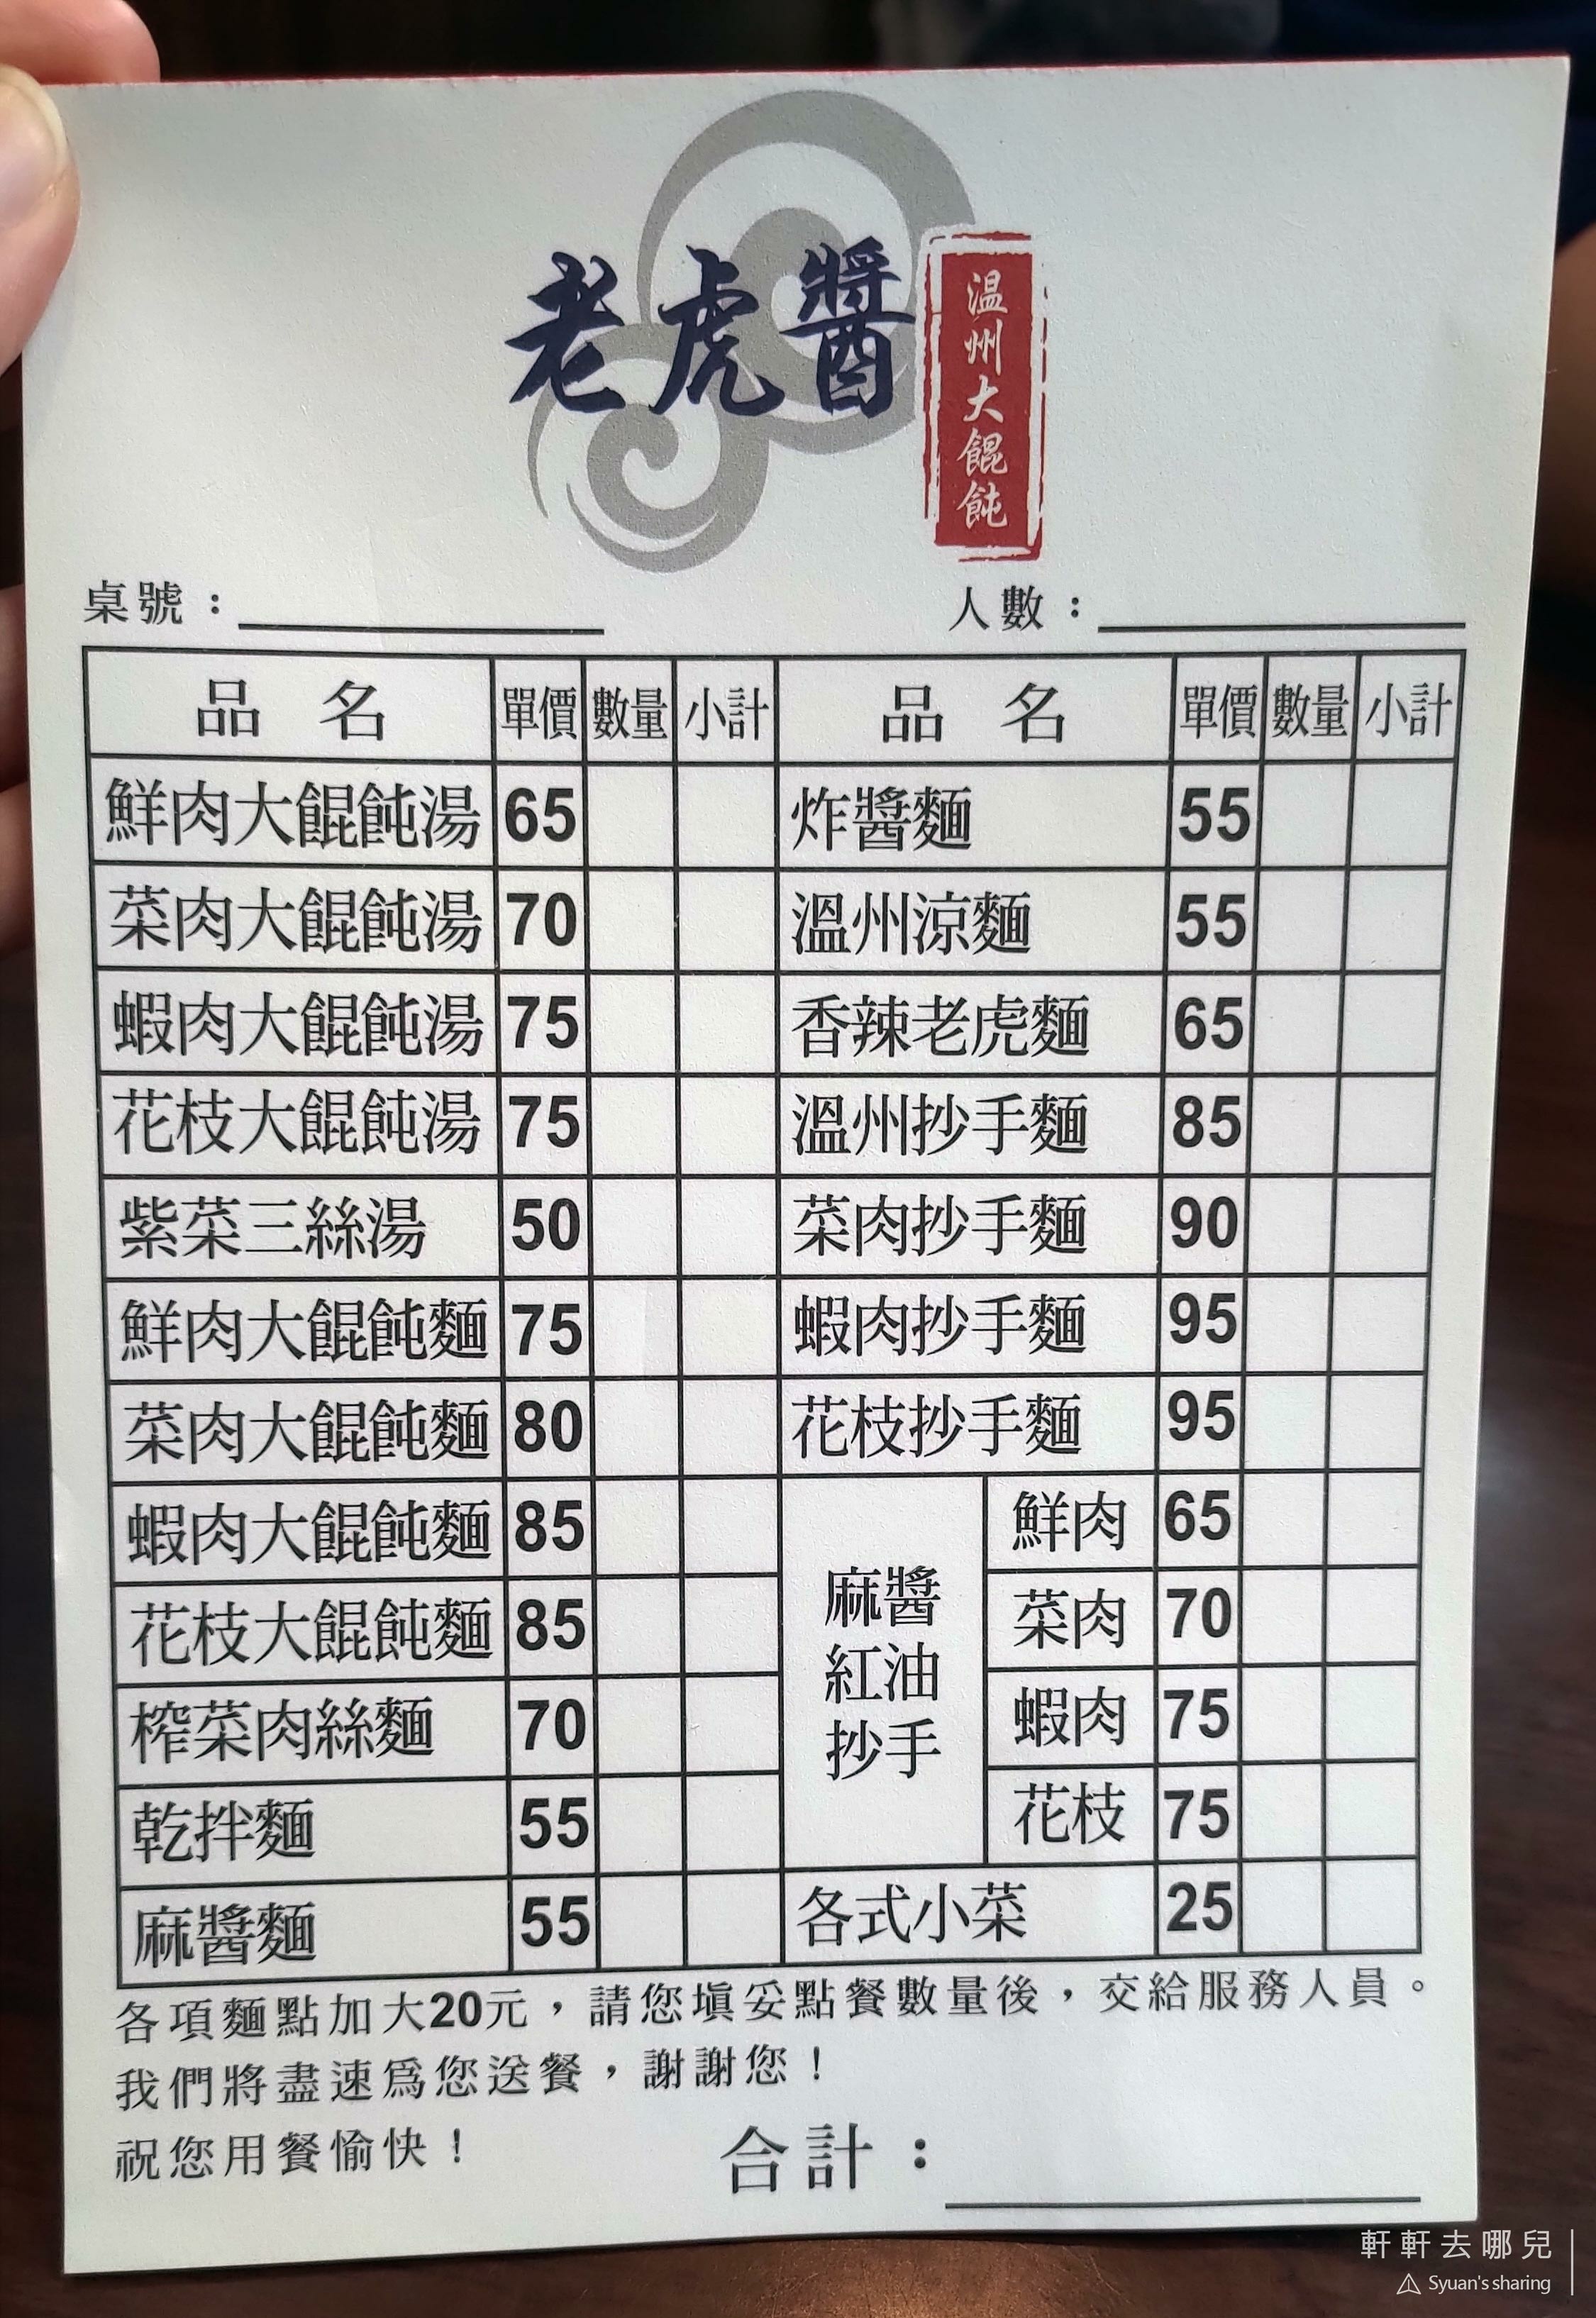 老虎醬
温州大餛飩
桌號：
人數：
品名 單價 數量 小計 品名 單價 數量 小計
鮮肉大餛飩湯 65 炸醬麵 55
菜肉大餛飩湯 70 溫州涼麵 55
蝦肉大餛飩湯 75 香辣老虎麵 65
花枝大餛飩湯 75 溫州抄手麵 85
紫菜三絲湯 50 菜肉抄手麵 90
鮮肉大餛飩麵 75 蝦肉抄手麵 95
菜肉大餛飩麵 80 花枝抄手麵 95
蝦肉大餛飩麵 85 麻醬紅油抄手 鮮肉 65
花枝大餛飩麵 85 菜肉 70
榨菜肉絲麵 70 蝦肉 75
乾拌麵 55 花枝 75
麻醬麵 55 各式小菜 25
各項麵點加大20元，請您填妥點餐數量後，交給服務人員。
我們將盡速為您送餐，謝謝您！
祝您用餐愉快！
合計：
軒軒去哪兒
Syuan's sharing